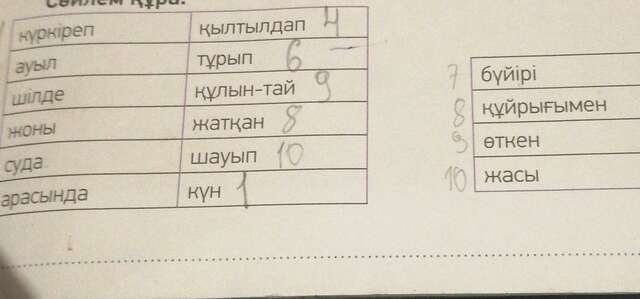 Сөйлем құра.
күркіреп қылтылдап 4
ауыл тұрып 6
шілде құлын-тай 9
жоны жатқан 8
суда шауып 10
арасында күн 1
7 бүйірі
8 құйрығымен
9 өткен
10 жасы